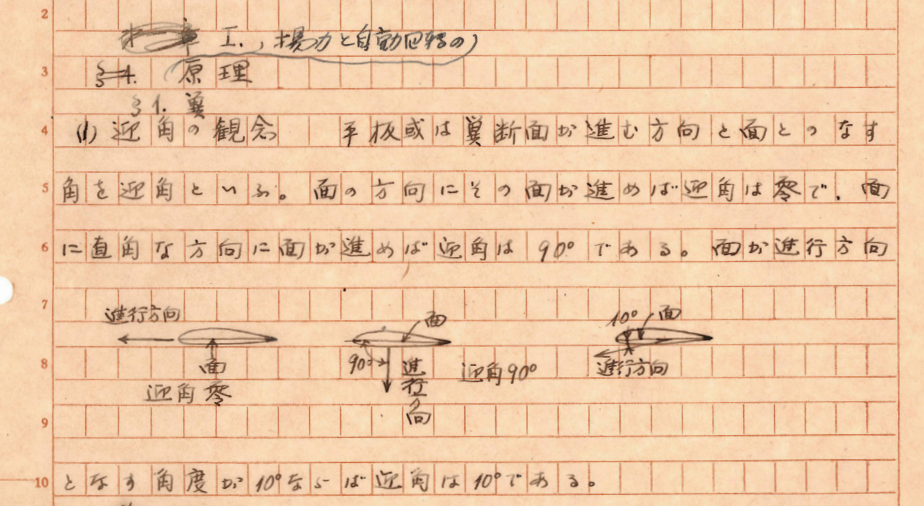 2
I., 揚力と自動回転の
3
§1. 原理
§1. 翼
4 (1) 迎角の観念 平板或は翼断面が進む方向と面とのなす
5 角を迎角といふ。面の方向にその面が進めば迎角は零で、面
6 に直角な方向に面が進めば迎角は90°である。面が進行方向
7
進行方向 面 10° 面
8 面 90° 進行方向 迎角90° 進行方向
迎角零
9
10 となす角度が10°ならば迎角は10°である。